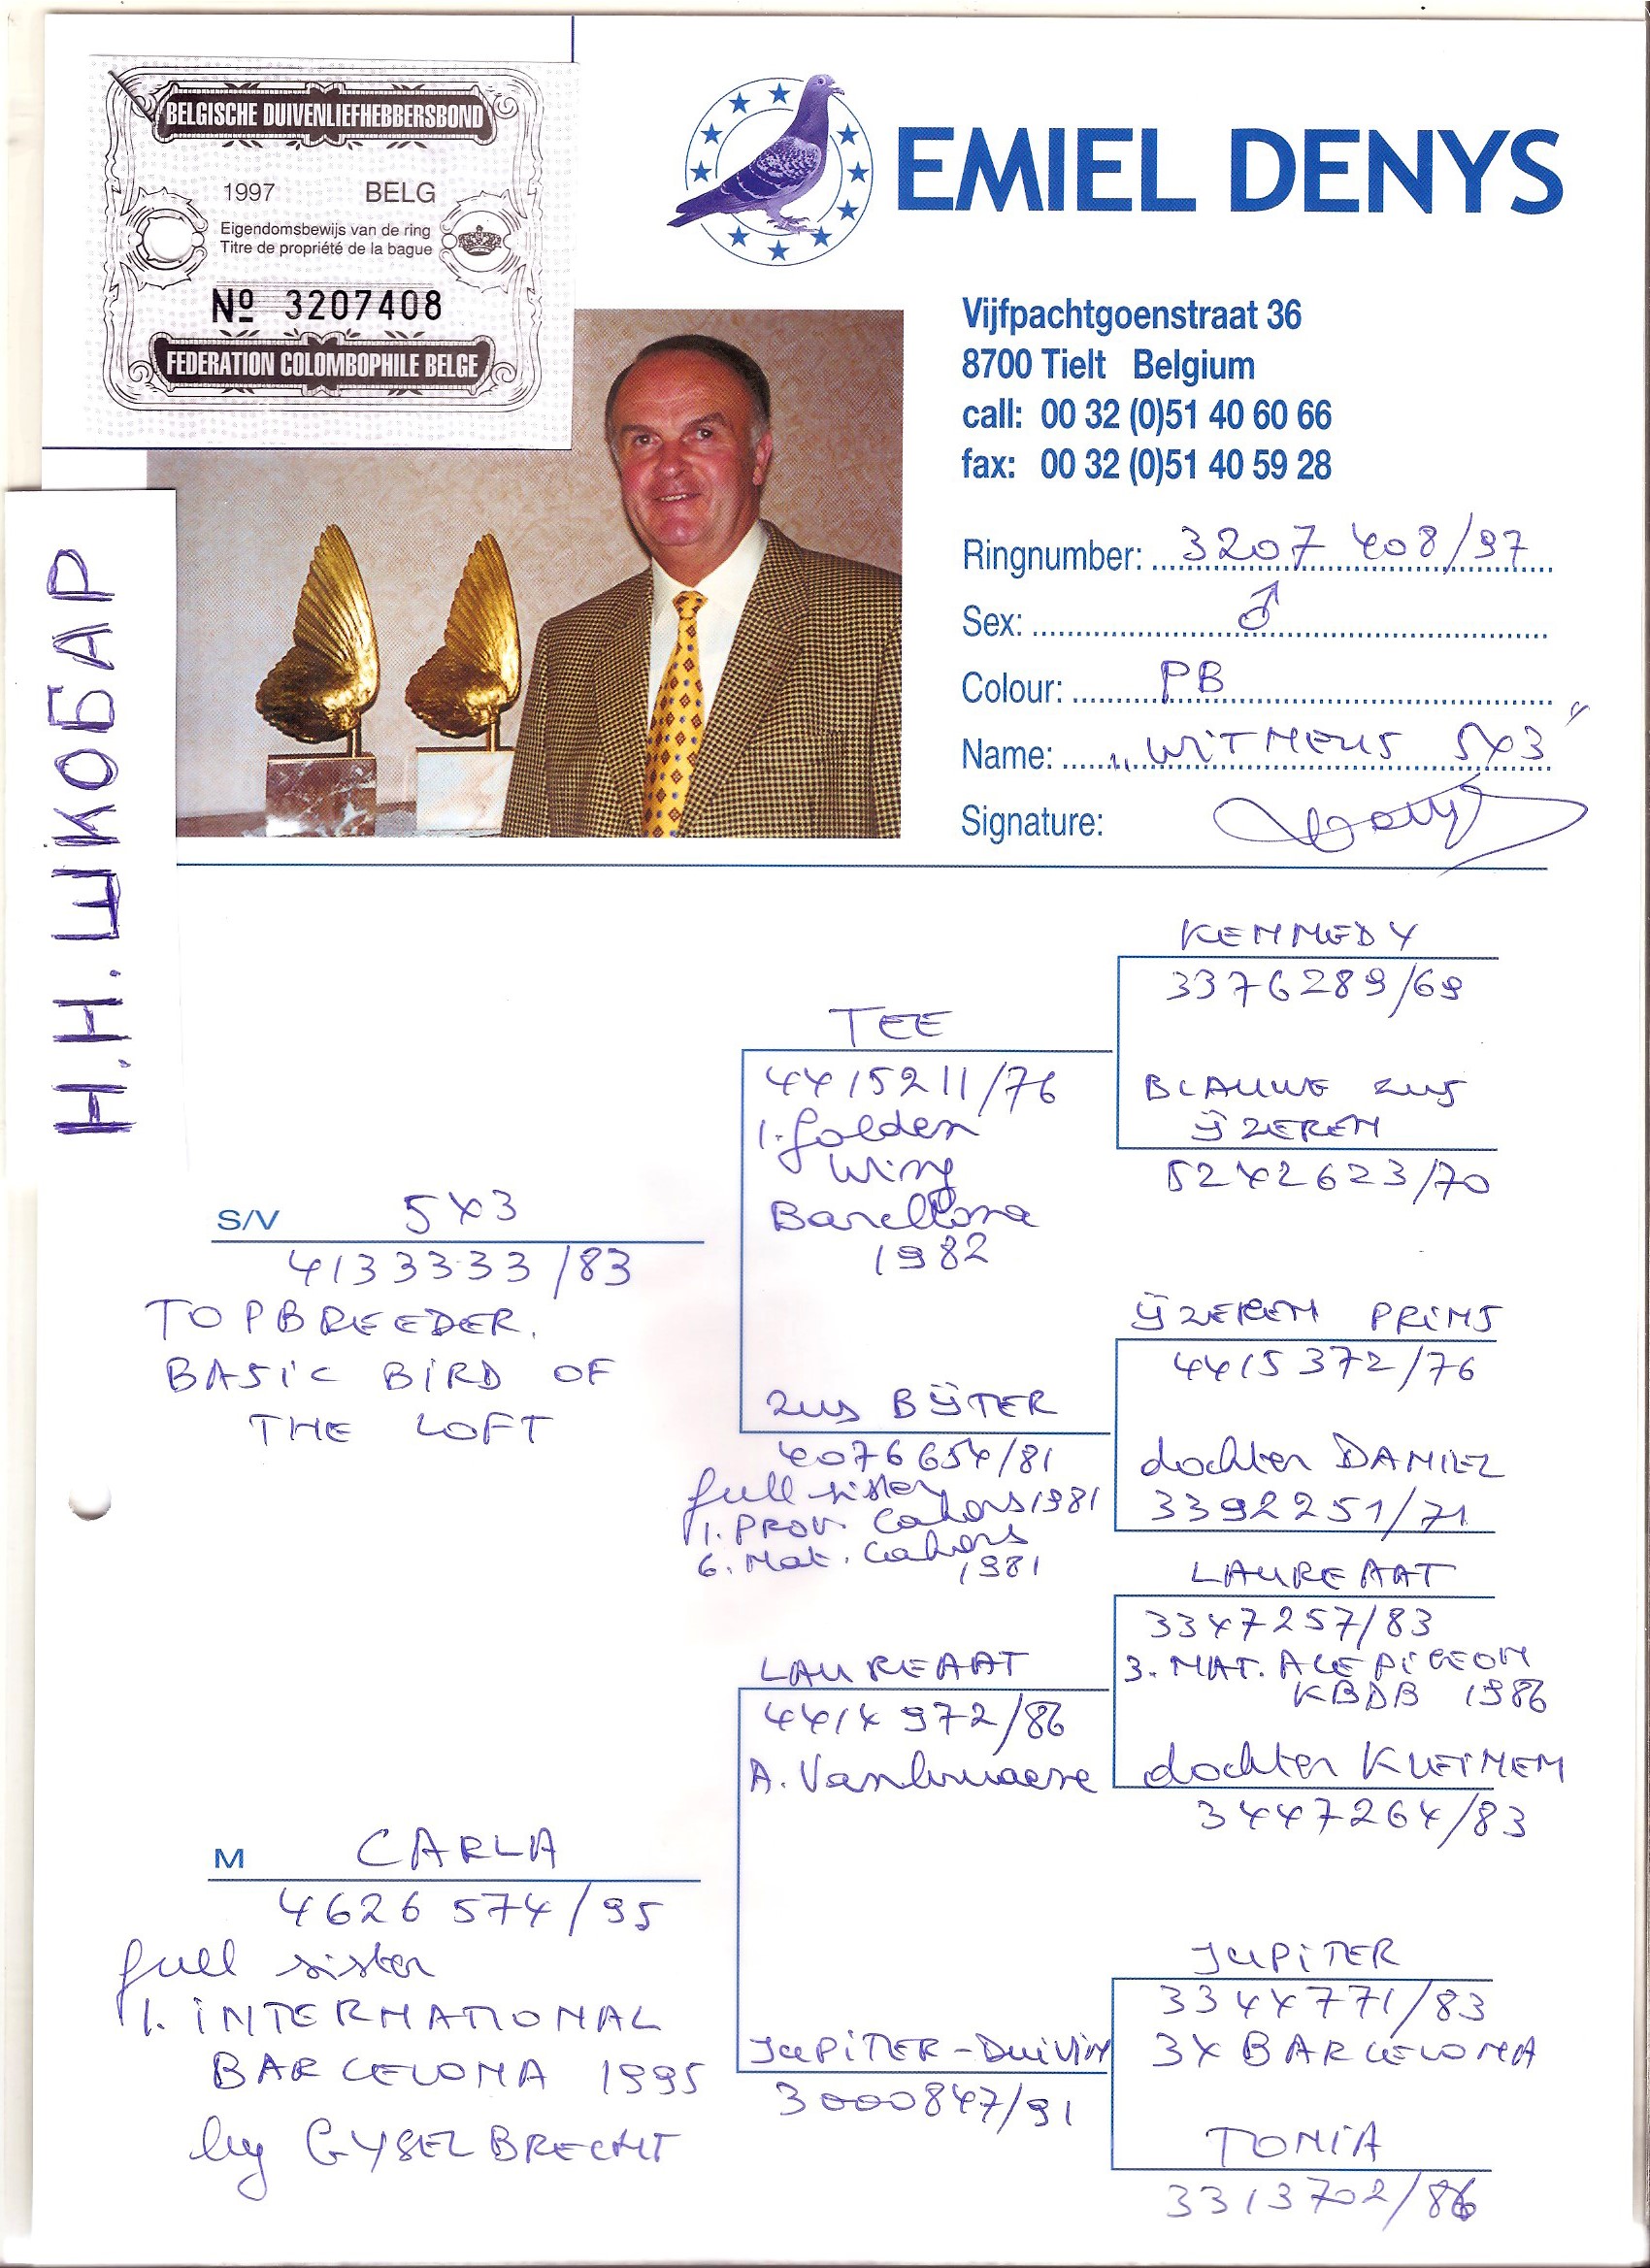 BELGISCHE DUIVENLIEFHEBBERSBOND
1997 BELG
Eigendomsbewijs van de ring
Titre de propriété de la bague
Nº 3207408
FEDERATION COLOMBOPHILE BELGE
EMIEL DENYS
Vijfpachtgoenstraat 36
8700 Tielt Belgium
call: 00 32 (0)51 40 60 66
fax: 00 32 (0)51 40 59 28
Ringnumber: 3207 408/97
Sex: ♂
Colour: PB
Name: „WITNEUS 5X3"
Signature:
Н.Н.ШКОБАР
S/V 5X3
4133333/83
TOPBREEDER.
BASIC BIRD OF
THE LOFT
TEE
4415211/76
1. Golden
Wing
Barcellona
1982
zus BŸTER
4076654/81
full sister
1. PROV. Cahors 1981
6. Nat. Cahors
1981
KENNEDY
3376289/69
BLAUWE zus
ŸZEREN
5242623/70
ŸZEREN PRINS
4415372/76
dochter DANIEL
3392251/71
M CARLA
4626574/95
full sister
1. INTERNATIONAL
BARCELONA 1995
by GYSELBRECHT
LAUREAAT
4414972/86
A. Vanbruaene
JUPITER-DUIVIN
3000847/91
LAUREAAT
3347257/83
3. NAT. ACE PIGEON
KBDB 1986
dochter KLEINEN
3447264/83
JUPITER
3344771/83
3X BARCELONA
TONIA
3313702/86